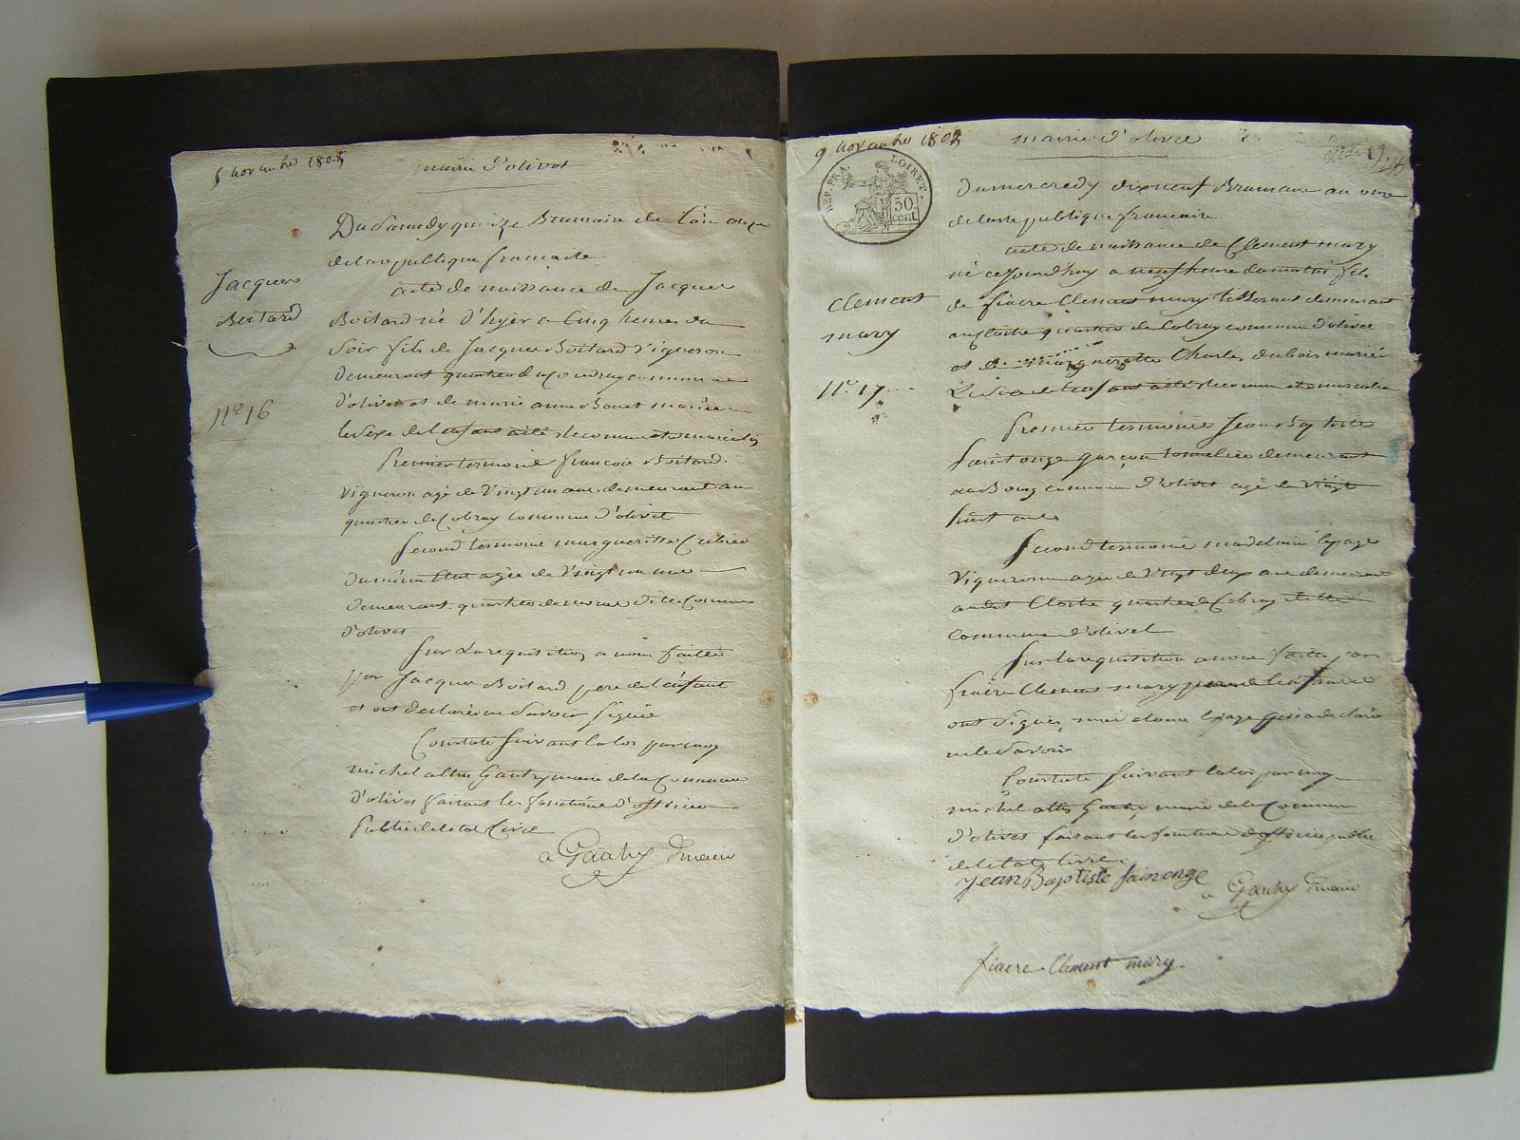 mairie d'olivet
Jacques
Boitard
nº 16
Du Samedy quinze Brumaire de l'an onze
de la republique francaise
acte de naissance de Jacques
Boitard né d'hyer a Cinq heures du
Soir fils de Jacques Boitard Vigneron
demeurant quartier du commune
d'olivet et de marie anne Bouet mariés
le Sexe de l'enfant a été reconnu etre masculin
Premier temoins francois Boitard
Vigneron agé de Vingt un ans demeurant au
quartier de Cobray commune d'olivet
Second temoins margueritte
agée de Vingt
demeurant quartier de Commune
d'olivet
Sur la requisition a nous faitte
par Jacques Boitard pere de l'enfant
et ont declaré ne Savoir Signé
Constaté Suivant la loi par moy
michel altin Gautry maire de la Commune
d'olivet faisant les fonctions d'officier
Public de l'etat Civil
a Gautry maire
mairie d'olivet
REP. FRA. LOIRET.
50
cent.
Clement
mary
nº 17
Du mercredy dixneuf Brumaire an onze
de la republique francaise
acte de naissance de Clement mary
né cejourd'huy a neuf heure du matin fils
de fiacre Clement mary demeurant
au Cloitre quartier de Cobray commune d'olivet
et de Charles dubois mariés
Le Sexe de l'enfant a été reconnu etre masculin
Premier temoins Jean Btiste
Saintonge garçon tonnelier demeurant
au Bourg commune d'olivet agé de vingt
huit ans
Second temoins madelaine lepage
Vigneronne agée de Vingt deux ans demeurant
audit Cloitre quartier de Cobray
commune d'olivet
Sur la requisition a nous faitte par
fiacre Clement mary pere de l'enfant
ont Signés, lepage declaré
ne le Savoir
Constaté Suivant la loi par moy
michel altin Gautry maire de la Commune
d'olivet faisant les fonctions d'officier public
de l'etat Civil
Jean Baptiste Sainonge
a Gautry maire
fiacre Clement mary